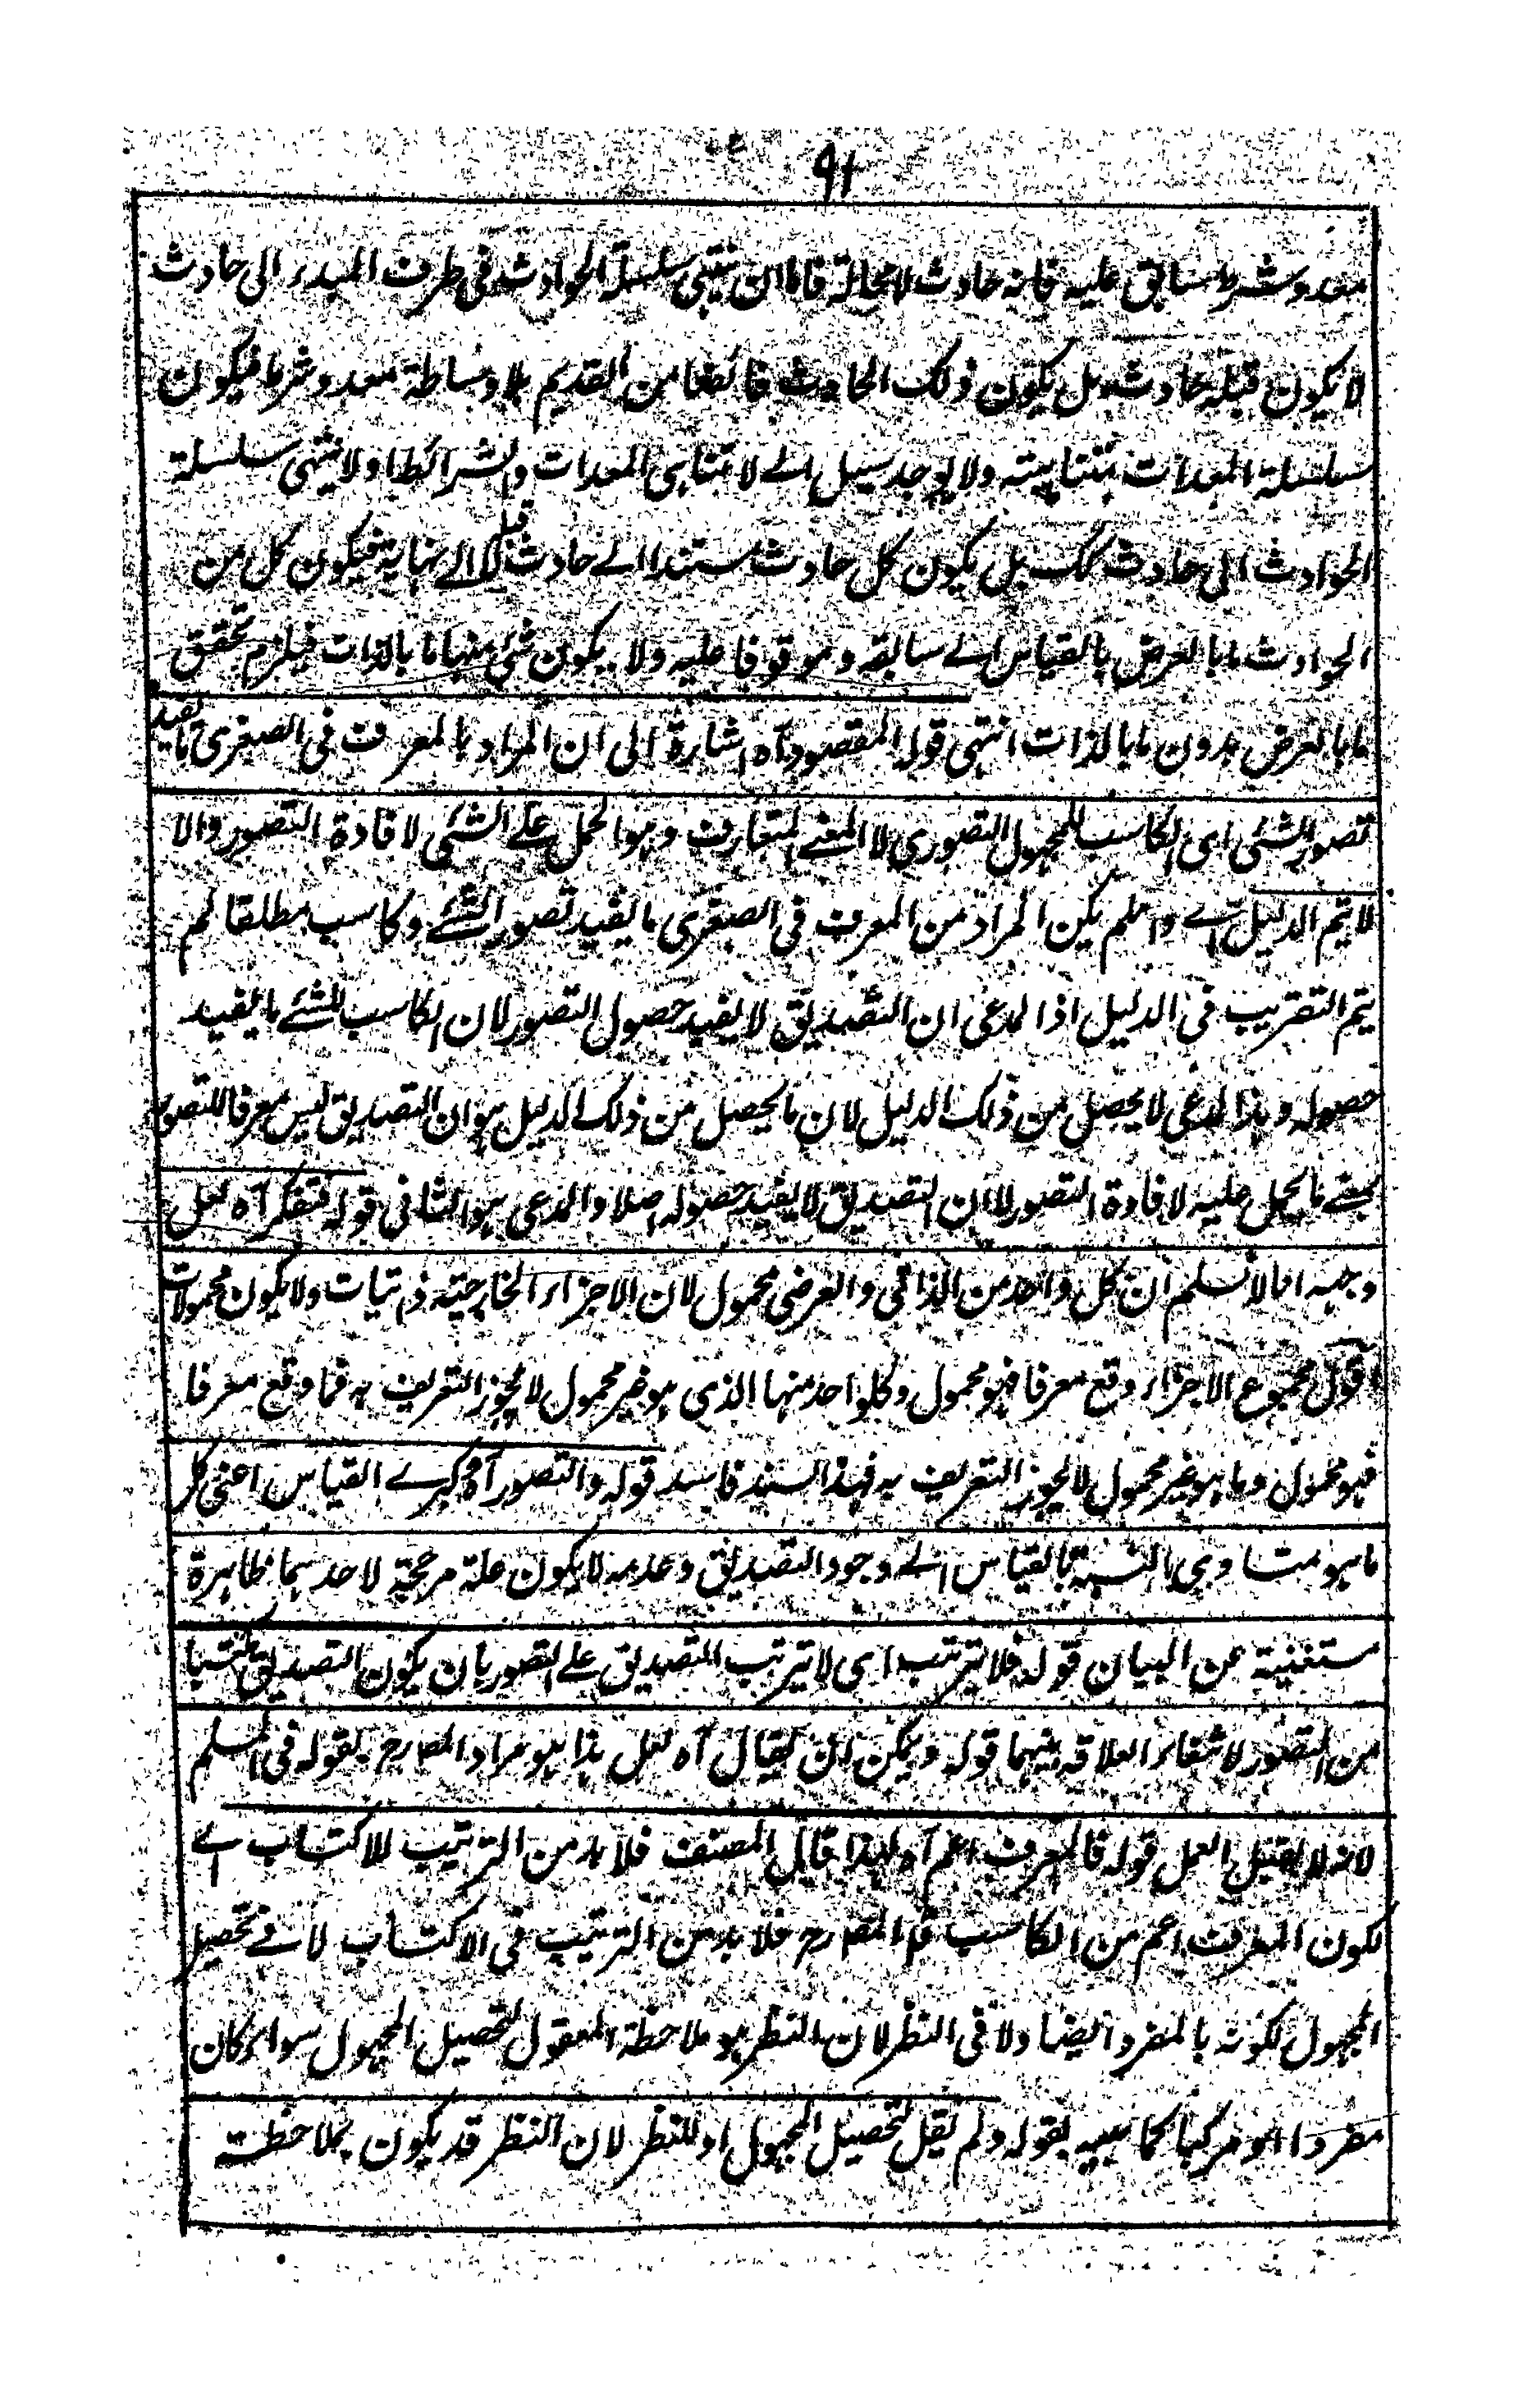 ٩١
معد وشرط سابق عليه فانه حادث لا محالة فاما ان ينتهى سلسلة الحوادث فى طرف المبدء الى حادث
لا يكون قبله حادث بل يكون ذلك الحادث فائضا من القديم بلا وساطة معد وشرط فيكون
سلسلة المعدات متناهية ولا يوجد سبيل الے لا تناهى المعدات والشرائط او لا ينتهى سلسلة
الحوادث الى حادث كك بل يكون كل حادث مستندا الے حادث قبله لا الے نهاية فيكون كل من
الحوادث ما بالعرض بالقياس الے سابقه وموقوفا عليه ولا يكون شئ منها ما بالذات فيلزم تحقق
ما بالعرض بدون ما بالذات انتهى قوله المقصود آه اشارة الى ان المراد بالمعرف فى الصغرى ما يفيد
تصور الشئ اى الكاسب للمجهول التصورى لا المعنے المتعارف وهو الحمل علے الشئ لافادة التصور والا
لا يتم الدليل اے وان لم يكن المراد من المعرف فى الصغرى ما يفيد تصور الشئے وكاسب مطلقا لم
يتم التقريب فى الدليل اذ المدعى ان التصديق لا يفيد حصول التصور لان الكاسب للشئے ما يفيد
حصوله وهذا المدعى لا يحصل من ذلك الدليل لان ما يحصل من ذلك الدليل هو ان التصديق ليس معرفا للتصور
بمعنے ما يحمل عليه لافادة التصور لا ان التصديق لا يفيد حصوله اصلا والمدعى هو الثانى قوله فتفكر آه لعل
وجهه انا لا نسلم ان كل واحد من الذاتى والعرضى محمول لان الاجزاء الخارجية ذاتيات ولا يكون محمولات
اقول مجموع الاجزاء وقع معرفا فهو محمول وكل واحد منها الذى هو غير محمول لا يجوز التعريف به فما وقع معرفا
فهو محمول وما هو غير محمول لا يجوز التعريف به فهذا السند فاسد قوله والتصور آه كبرے القياس اعنى كل
ما هو متساوى بالنسبة بالقياس الے وجود التصديق وعدمه لا يكون علة مرجحة لاحدهما ظاهرة
مستغنية عن البيان قوله فلا يترتب اى لا يترتب التصديق علے التصور بان يكون التصديق مكتسبا
من التصور لانتفاء العلاقة بينهما قوله ويمكن ان يقال آه لعل هذا هو مراد المصنف رح بقوله فى السلم
لانه لا يقبل العمل قوله فالمعرف اعم آه لهذا قال المصنف فلا بد من الترتيب للاكتساب اے
لكون المعرف اعم من الكاسب قال المصنف رح فلا بد من الترتيب فى الاكتساب لا فے تحصيل
المجهول لكونه بالمفرد ايضا ولا فى النظر لان النظر هو ملاحظة المعقول لتحصيل المجهول سواء كان
مفردا او مركبا كما سيجيه بقوله ولم يقل لتحصيل المجهول او للنظر لان النظر قد يكون بملاحظة